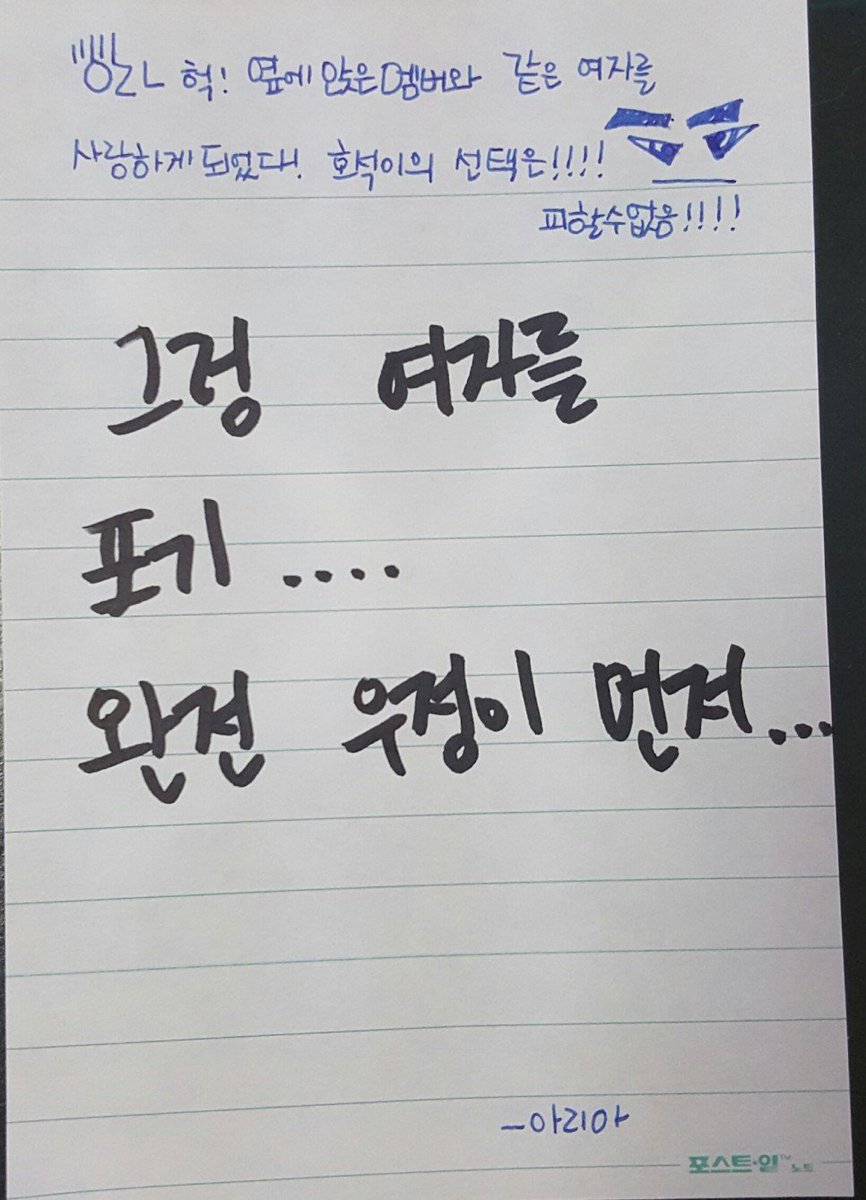 헉! 옆에 앉은 멤버와 같은 여자를
사랑하게 되었다! 호석이의 선택은!!!!
피할수없음!!!!
그겅 여자를
포기....
완젼 우정이 먼저...
-아리아
포스트·잇™ 노트